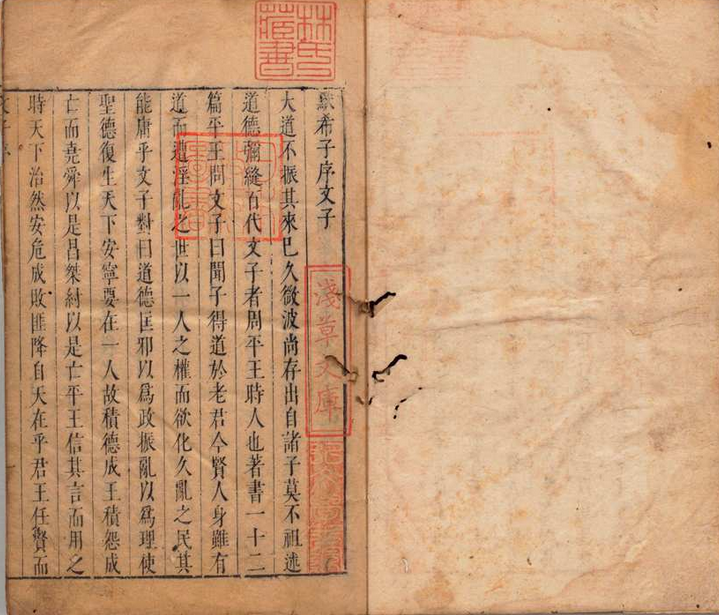 默希子序文子
大道不振其來已久微波尚存出自諸子莫不祖述
道德彌縫百代文子者周平王時人也著書一十二
篇平王問文子曰聞子得道於老君今賢人身雖有
道而遭淫亂之世以一人之權而欲化久亂之民其
能庸乎文子對曰道德匡邪以爲政振亂以爲理使
聖德復生天下安寧要在一人故積德成王積怨成
亡而堯舜以是昌桀紂以是亡平王信其言而用之
時天下治然安危成敗匪降自天在乎君王任賢而
淺草文庫